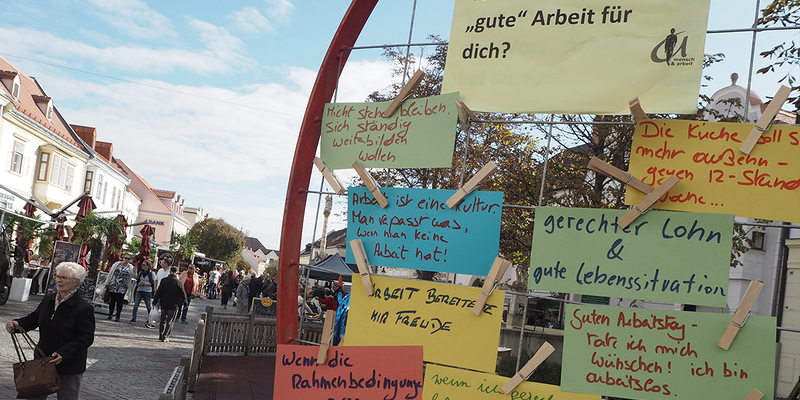 „gute“ Arbeit für
dich?
mensch
& arbeit
Nicht stehen bleiben.
Sich ständig
weiterbilden
wollen
Arbeit ist eine Kultur.
Man verpasst was,
wenn man keine
Arbeit hat!
Die Küche soll
mehr außen-
gegen 12-Stand
Woche...
gerechter Lohn
&
gute Lebenssituation
ARBEIT BEREITET
MIR FREUDE
Guten Arbeitstag-
rate ich mich
wünschen! ich bin
arbeitslos.
Wenn die
Rahmenbedingung
wenn ich
BANK